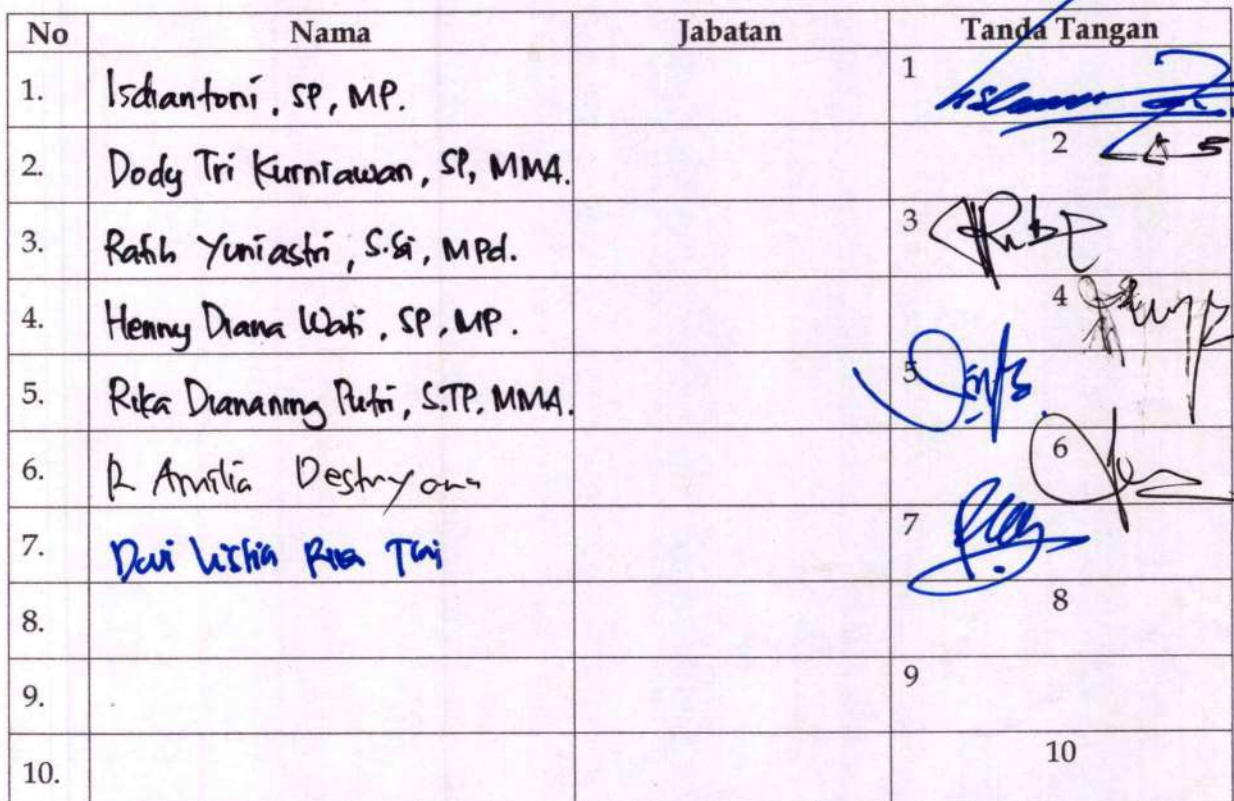 No Nama Jabatan Tanda Tangan
1. Ischantoni, SP, MP. 1
2. Dody Tri Kurniawan, SP, MMA. 2
3. Ratih Yuniastri, S.Si, MPd. 3
4. Henny Diana Wati, SP, MP. 4
5. Rika Diananing Putri, S.TP, MMA. 5
6. R Amilia Destryana 6
7. 7
8. 8
9. 9
10. 10